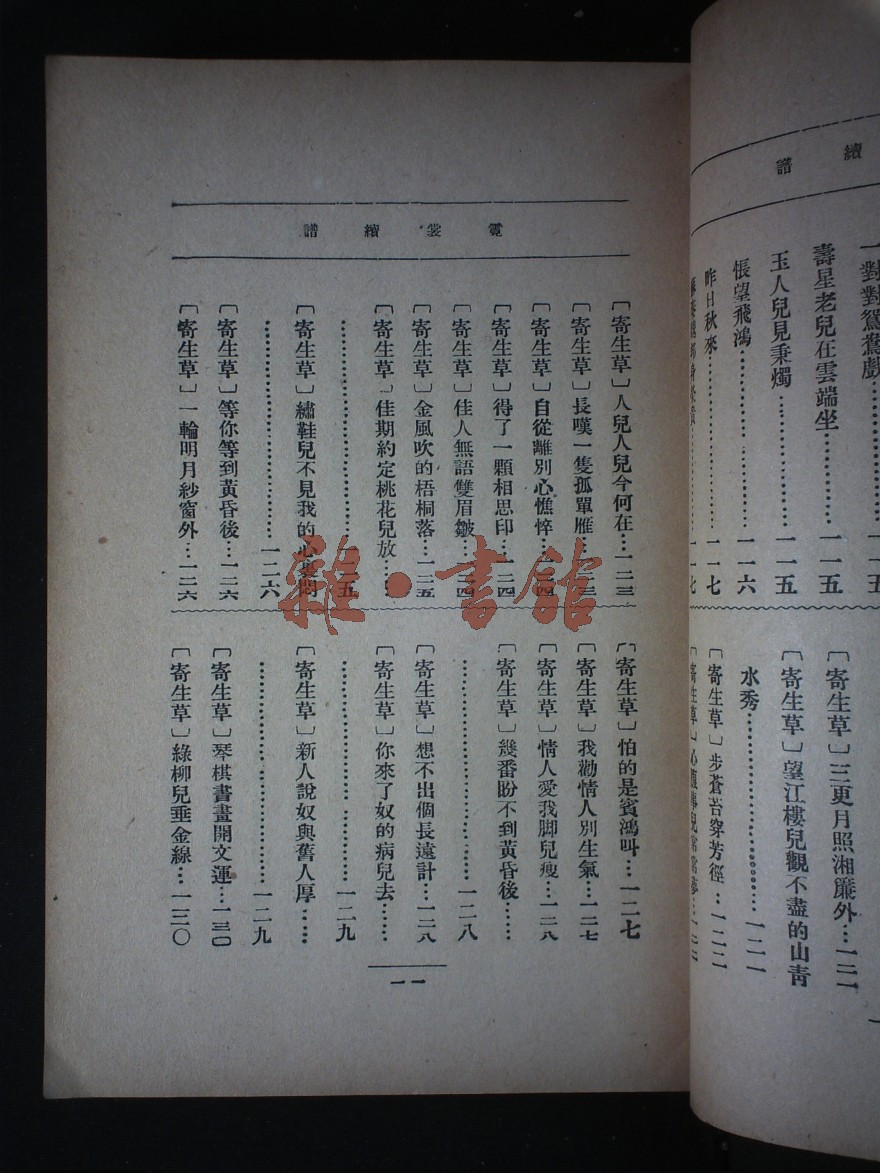 續譜
一對對鴛鴦戲……一一五
壽星老兒在雲端坐……一一五
玉人兒見秉燭……一一五
悵望飛鴻……一一六
昨日秋來……一一七
一一七
〔寄生草〕三更月照湘簾外…一二一
〔寄生草〕望江樓兒觀不盡的山青
水秀……一二一
〔寄生草〕步蒼苔穿芳徑…一二二
〔寄生草〕
霓裳續譜
〔寄生草〕人兒人兒今何在…一二三
〔寄生草〕長嘆一隻孤單雁…一二三
〔寄生草〕自從離別心憔悴…一二四
〔寄生草〕得了一顆相思印…一二四
〔寄生草〕佳人無語雙眉皺…一二四
〔寄生草〕金風吹的梧桐落…一二五
〔寄生草〕佳期約定桃花兒放……
……一二五
〔寄生草〕繡鞋兒不見我的心裏悶
……一二六
〔寄生草〕等你等到黃昏後…一二六
〔寄生草〕一輪明月紗窗外…一二六
〔寄生草〕怕的是賓鴻叫…一二七
〔寄生草〕我勸情人別生氣…一二七
〔寄生草〕情人愛我脚兒瘦…一二八
〔寄生草〕幾番盼不到黃昏後……
……一二八
〔寄生草〕想不出個長遠計…一二八
〔寄生草〕你來了奴的病兒去……
……一二九
〔寄生草〕新人說奴與舊人厚……
……一二九
〔寄生草〕琴棋書畫開文運…一三〇
〔寄生草〕綠柳兒垂金線…一三〇
一一
雜·書館